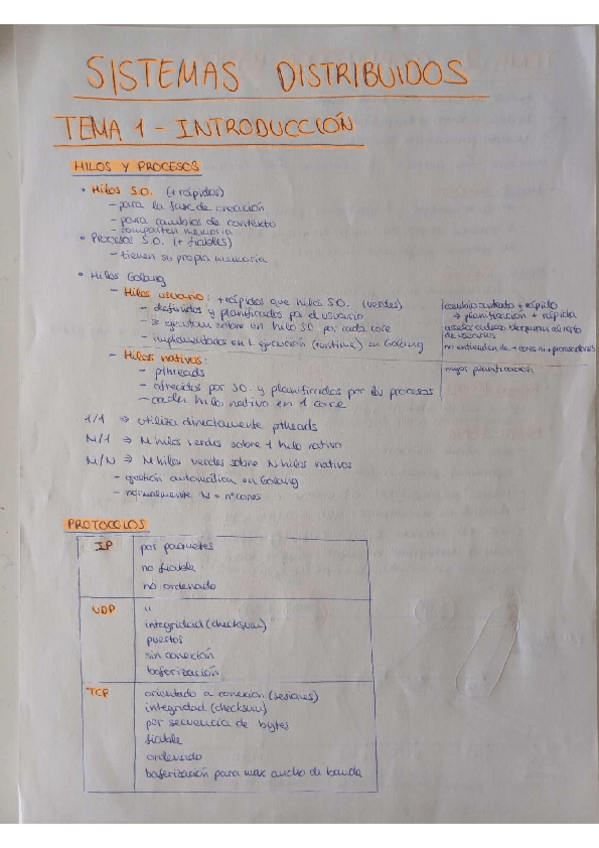 SISTEMAS DISTRIBUIDOS
TEMA 1 - INTRODUCCIÓN
HILOS Y PROCESOS
• Hilos S.O. (+rápidos)
- para la fase de creación
- para cambios de contexto
- comparten memoria
• Procesos S.O. (+ fiables)
- tienen su propia memoria
• Hilos Golang
- Hilos usuario: + rápidos que hilos S.O. (verdes)
- definidos y planificados por el usuario
- se ejecutan sobre un hilo SO. por cada core
- implementados en l. ejecución (runtime) en Golang
cambio contexto + rápido
→ planificación + rápida
de usuarios
no entienden de + cores ni + procesadores
- Hilos nativos:
- pthreads
- ofrecidos por SO. y planificados por procesos
- cada hilo nativo en 1 core
mejor planificación
1/1 ⇒ utiliza directamente pthreads
M/1 ⇒ M hilos verdes sobre 1 hilo nativo
M/N ⇒ M hilos verdes sobre N hilos nativos
- gestión automática en Golang
- normalmente N = nº cores
PROTOCOLOS
IP
por paquetes
no fiable
no ordenado
UDP
"
integridad (checksum)
puertos
sin conexión
boferización
TCP
orientado a conexión (sesiones)
integridad (checksum)
por secuencia de bytes
fiable
ordenado
boferización para max ancho de banda